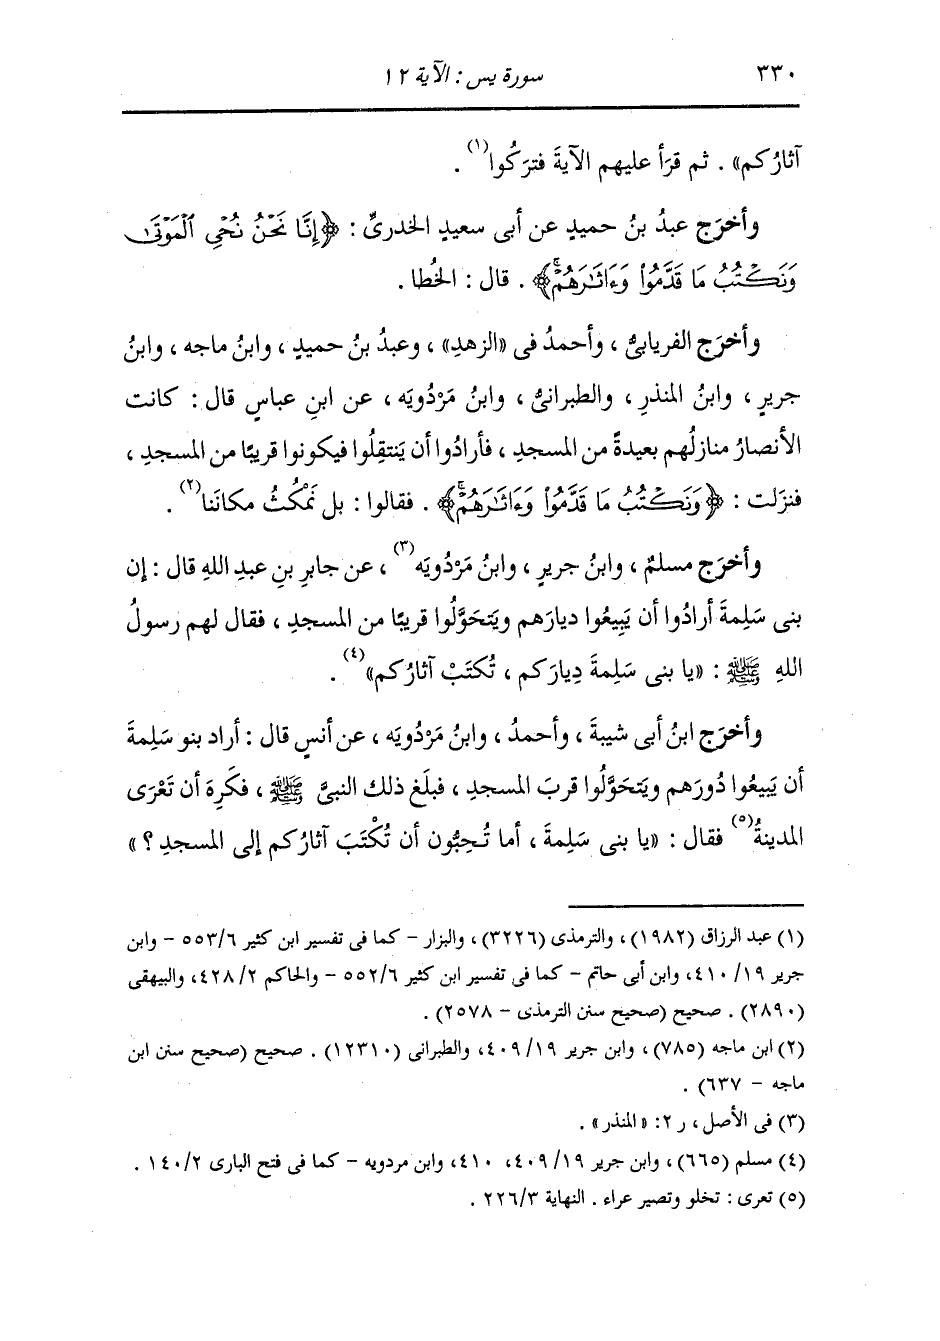 ٣٣٠
سورة يس : الآية ١٢
آثارُكم» . ثم قرَأ عليهم الآيةَ فتركُوا(١) .
وأخرَج عبدُ بنُ حميدٍ عن أبى سعيدٍ الخدرىِّ : ﴿إِنَّا نَحْنُ نُحْىِ ٱلْمَوْتَىٰ
وَنَكْتُبُ مَا قَدَّمُوا۟ وَءَاثَـٰرَهُمْۚ﴾ . قال : الخُطا .
وأخرَج الفريابىُّ ، وأحمدُ فى «الزهدِ» ، وعبدُ بنُ حميدٍ ، وابنُ ماجه ، وابنُ
جريرٍ ، وابنُ المنذرِ ، والطبرانىُّ ، وابنُ مَرْدُويَه ، عن ابنِ عباسٍ قال : كانت
الأنصارُ منازلُهم بعيدةً من المسجدِ ، فأرادُوا أن يَنتقِلُوا فيكونوا قريبًا من المسجدِ ،
فنزَلت : ﴿وَنَكْتُبُ مَا قَدَّمُوا۟ وَءَاثَـٰرَهُمْۚ﴾ . فقالوا : بل نَمْكُثُ مكانَنا(٢) .
وأخرَج مسلمٌ ، وابنُ جريرٍ ، وابنُ مَرْدُويَه(٣) ، عن جابرِ بنِ عبدِ اللهِ قال : إن
بنى سَلِمةَ أرادُوا أن يَبِيعُوا ديارَهم ويَتحَوَّلُوا قريبًا من المسجدِ ، فقال لهم رسولُ
اللهِ ﷺ : «يا بنى سَلِمةَ دِيارَكم ، تُكتَبْ آثارُكم»(٤) .
وأخرَج ابنُ أبى شيبةَ ، وأحمدُ ، وابنُ مَرْدُويَه ، عن أنسٍ قال : أراد بنو سَلِمةَ
أن يَبِيعُوا دُورَهم ويَتحَوَّلُوا قربَ المسجدِ ، فبلَغ ذلك النبىَّ ﷺ ، فكَرِهَ أن تَعْرَى
المدينةُ(٥) فقال : «يا بنى سَلِمةَ ، أما تُحِبُّون أن تُكْتَبَ آثارُكم إلى المسجدِ ؟»
(١) عبد الرزاق (١٩٨٢) ، والترمذى (٣٢٢٦) ، والبزار - كما فى تفسير ابن كثير ٥٥٣/٦ - وابن
جرير ٤١٠/١٩، وابن أبى حاتم - كما فى تفسير ابن كثير ٥٥٢/٦ - والحاكم ٤٢٨/٢، والبيهقى
(٢٨٩٠) . صحيح (صحيح سنن الترمذى - ٢٥٧٨) .
(٢) ابن ماجه (٧٨٥) ، وابن جرير ٤٠٩/١٩، والطبرانى (١٢٣١٠) . صحيح (صحيح سنن ابن
ماجه - ٦٣٧) .
(٣) فى الأصل ، ر ٢: «المنذر» .
(٤) مسلم (٦٦٥) ، وابن جرير ٤٠٩/١٩، ٤١٠، وابن مردويه - كما فى فتح البارى ١٤٠/٢ .
(٥) تعرى : تخلو وتصير عراء . النهاية ٢٢٦/٣ .